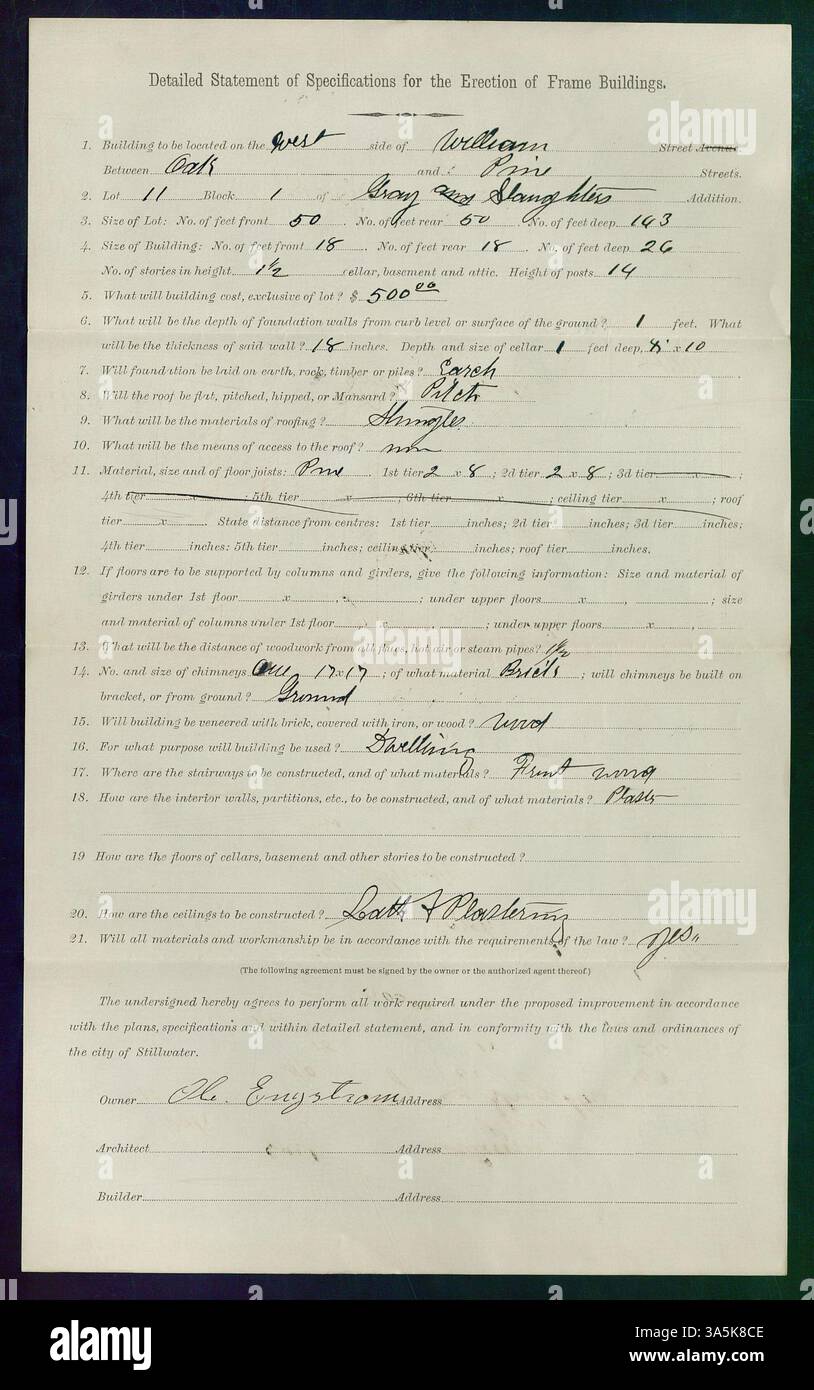 Detailed Statement of Specifications for the Erection of Frame Buildings.
1. Building to be located on the West side of William Street Avenue
Between Oak and Pine Streets.
2. Lot 11 Block 1 of Gray and Slaughters Addition.
3. Size of Lot: No. of feet front 50 No. of feet rear 50 No. of feet deep 143
4. Size of Building: No. of feet front 18 No. of feet rear 18 No. of feet deep 26
No. of stories in height 1 1/2 cellar, basement and attic. Height of posts 14
5. What will building cost, exclusive of lot? $ 500 00
6. What will be the depth of foundation walls from curb level or surface of the ground? 1 feet. What
will be the thickness of said wall? 18 inches. Depth and size of cellar 1 feet deep, x 10
7. Will foundation be laid on earth, rock, timber or piles? Earth
8. Will the roof be flat, pitched, hipped, or Mansard? Pitch
9. What will be the materials of roofing? Shingles
10. What will be the means of access to the roof?
11. Material, size and of floor joists: Pine 1st tier 2 x 8; 2d tier 2 x 8; 3d tier x ;
4th tier x ; 5th tier x ; 6th tier x ; ceiling tier x ; roof
tier x . State distance from centres: 1st tier inches; 2d tier inches; 3d tier inches;
4th tier inches: 5th tier inches; ceiling tier inches; roof tier inches.
12. If floors are to be supported by columns and girders, give the following information: Size and material of
girders under 1st floor x , ; under upper floors x , ; size
and material of columns under 1st floor x , ; under upper floors x ,
13. What will be the distance of woodwork from all flues, hot air or steam pipes? 1 1/2
14. No. and size of chimneys One 17 x 17; of what material Brick; will chimneys be built on
bracket, or from ground? Ground
15. Will building be veneered with brick, covered with iron, or wood? Wood
16. For what purpose will building be used? Dwelling
17. Where are the stairways to be constructed, and of what materials? Front wood
18. How are the interior walls, partitions, etc., to be constructed, and of what materials? Plaster
19 How are the floors of cellars, basement and other stories to be constructed?
20. How are the ceilings to be constructed? Lath & Plastering
21. Will all materials and workmanship be in accordance with the requirements of the law? yes"
(The following agreement must be signed by the owner or the authorized agent thereof.)
The undersigned hereby agrees to perform all work required under the proposed improvement in accordance
with the plans, specifications and within detailed statement, and in conformity with the laws and ordinances of
the city of Stillwater.
Owner Ole. Engstrom Address
Architect Address
Builder Address
alamy
Image ID: 3A5K8CE
www.alamy.com